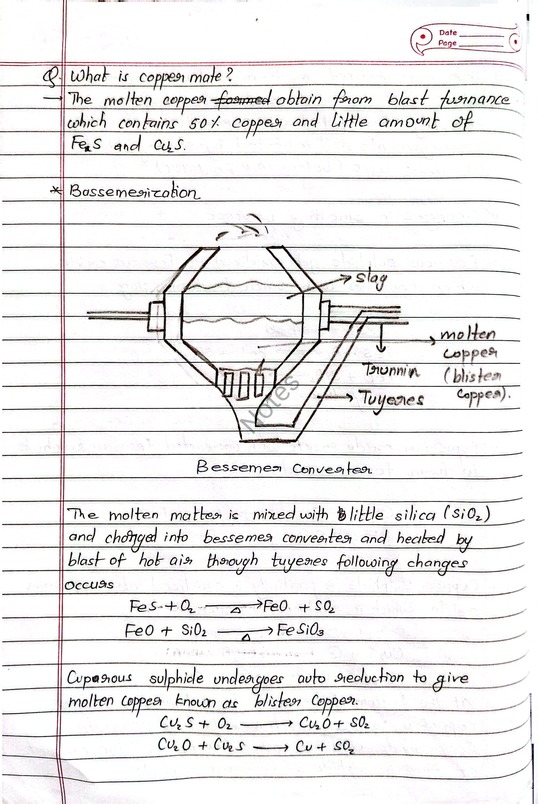 Date
Page
Q. What is copper mate?
→ The molten copper formed obtain from blast furnance
which contains 50% copper and little amount of
Fe₂S and Cu₂S.
* Bassemerization
slag
molten
copper
(blister
copper).
Trunnin
Tuyeres
Notes
Bessemer Converter
The molten matter is mixed with little silica (SiO₂)
and charged into bessemer converter and heated by
blast of hot air through tuyeres following changes
occurs
FeS + O₂ —△→ FeO + SO₂
FeO + SiO₂ —△→ FeSiO₃
Cuparous sulphide undergoes auto reduction to give
molten copper known as blister copper.
Cu₂S + O₂ ⟶ Cu₂O + SO₂
Cu₂O + Cu₂S ⟶ Cu + SO₂